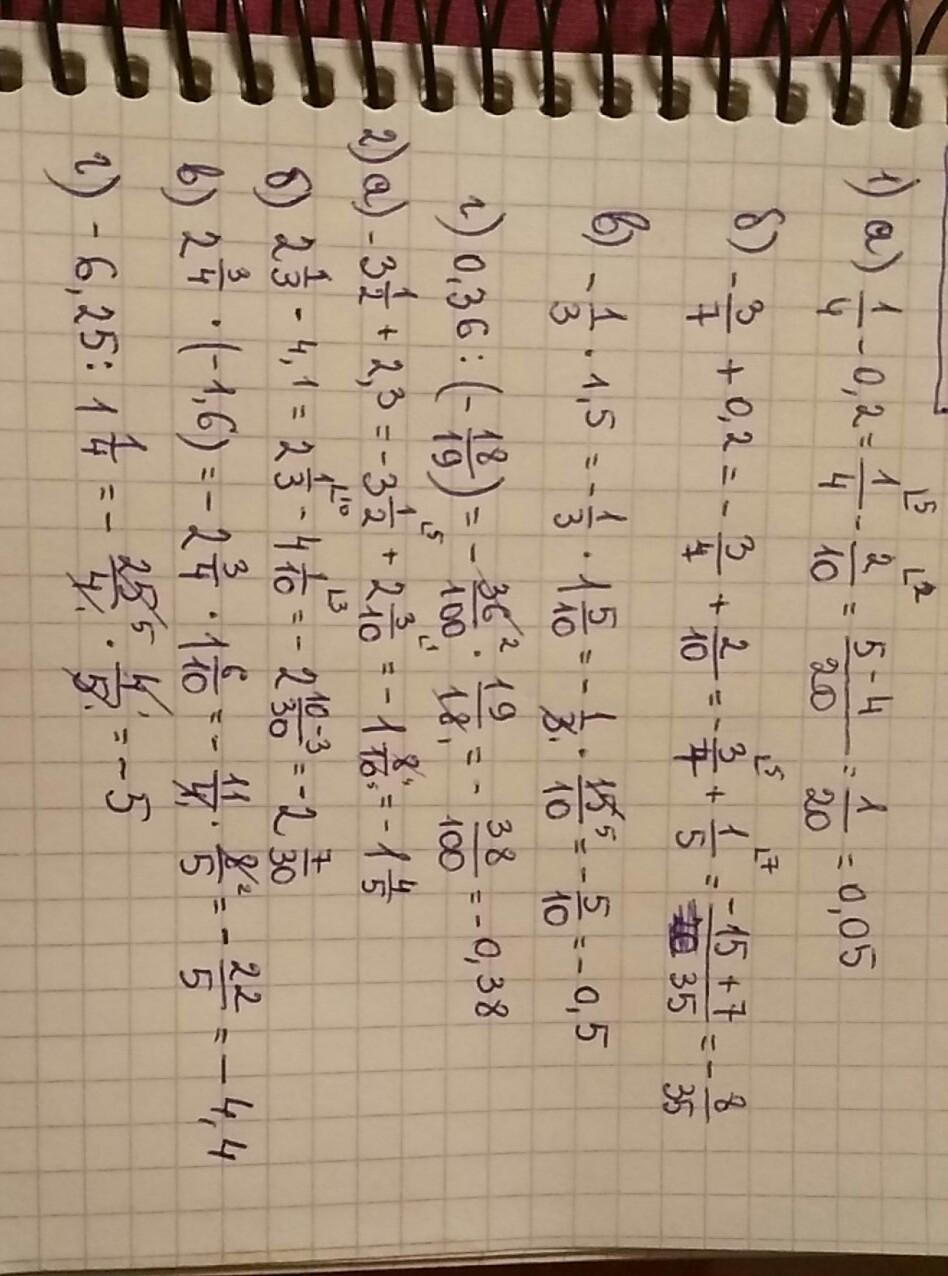 1) а) 1/4 - 0,2 = 1/4 - 2/10 = (5-4)/20 = 1/20 = 0,05
б) - 3/7 + 0,2 = - 3/7 + 2/10 = - 3/7 + 1/5 = (-15+7)/35 = - 8/35
в) - 1/3 · 1,5 = - 1/3 · 1 5/10 = - 1/3 · 15/10 = - 5/10 = -0,5
г) 0,36 : (- 18/19) = - 36/100 · 19/18 = - 38/100 = -0,38
2) а) - 3 1/2 + 2,3 = - 3 1/2 + 2 3/10 = - 1 8/10 = - 1 4/5
б) 2 1/3 - 4,1 = 2 1/3 - 4 1/10 = - 2 (10-3)/30 = - 2 7/30
в) 2 3/4 · (-1,6) = - 2 3/4 · 1 6/10 = - 11/4 · 8/5 = - 22/5 = - 4,4
г) - 6,25 : 1 1/4 = - 25/4 · 4/5 = - 5